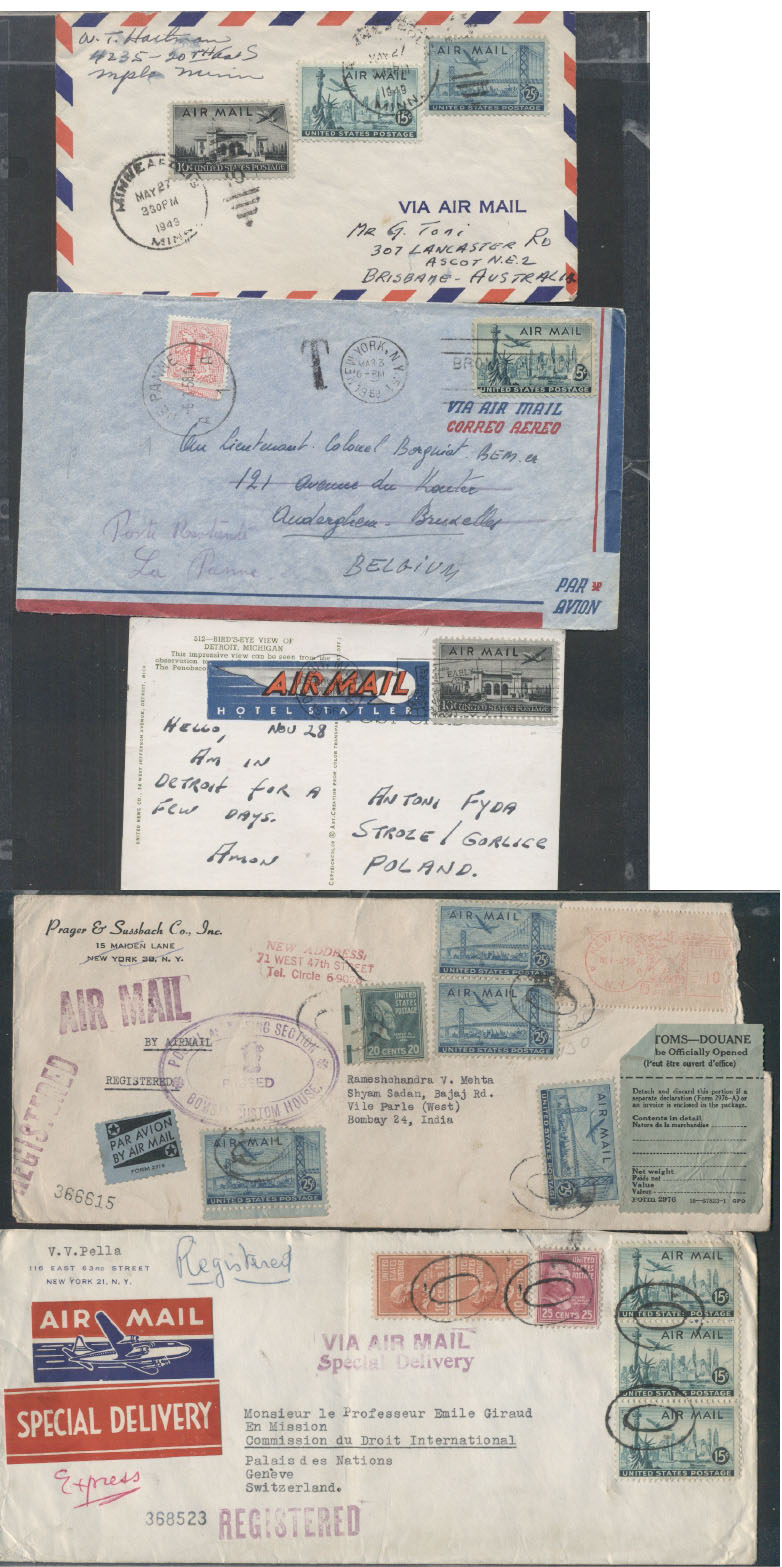 W. T. Hartman
4235-20TH Ave S
Mpls Minn
AIR MAIL
10¢ UNITED STATES POSTAGE
AIR MAIL
15¢
UNITED STATES POSTAGE
AIR MAIL
25¢
UNITED STATES POSTAGE
MAY 27
1949
MINN.
MINNEAPOLIS
MAY 27
230PM
1949
MINN.
VIA AIR MAIL
MR G. TONI
307 LANCASTER RD
ASCOT N.E.2
BRISBANE - AUSTRALIA
T
NEW YORK, N.Y.
MAR 3
6-PM
AIR MAIL
15¢
UNITED STATES POSTAGE
VIA AIR MAIL
CORREO AEREO
Au Lieutenant-Colonel Borguist BEM.er
121 avenue du Kouter
Auderghem - Bruxelles
BELGIUM
Poste Restante
La Panne
PAR
AVION
512—BIRD'S-EYE VIEW OF
DETROIT, MICHIGAN
This impressive view can be seen from the
observation
The Penobsco
AIR MAIL
HOTEL STATLER
AIR MAIL
10¢ UNITED STATES POSTAGE
HELLO, NOV 28
AM IN
DETROIT FOR A
FEW DAYS.
AMON
ANTONI FYDA
STROZE / GORLICE
POLAND.
Prager & Sussbach Co., Inc.
15 MAIDEN LANE
NEW YORK 38, N. Y.
NEW ADDRESS:
71 WEST 47th STREET
Tel. Circle 6-90
AIR MAIL
BY AIRMAIL
REGISTERED
REGISTERED
PASSED
BOMBAY CUSTOM HOUSE.
UNITED STATES POSTAGE
20 CENTS 20
AIR MAIL
25¢
UNITED STATES POSTAGE
AIR MAIL
25¢
UNITED STATES POSTAGE
Rameshchandra V. Mehta
Shyam Sadan, Bajaj Rd.
Vile Parle (West)
Bombay 24, India
PAR AVION
BY AIR MAIL
FORM 2978
366615
AIR MAIL
25¢
UNITED STATES POSTAGE
AIR MAIL
25¢
UNITED STATES POSTAGE
TOMS—DOUANE
be Officially Opened
(Peut être ouvert d'office)
Detach and discard this portion if a
separate declaration (Form 2976-A) or
an invoice is enclosed in the package.
Contents in detail
Nature de la marchandise
Net weight
Poids net
Value
Valeur
Form 2976 16—57823-1 GPO
V.V.Pella
116 EAST 63RD STREET
NEW YORK 21, N. Y.
Registered
AIR MAIL
SPECIAL DELIVERY
Express
368523
REGISTERED
VIA AIR MAIL
Special Delivery
25 CENTS 25
AIR MAIL
15¢
UNITED STATES POSTAGE
AIR MAIL
15¢
UNITED STATES POSTAGE
AIR MAIL
15¢
UNITED STATES POSTAGE
Monsieur le Professeur Emile Giraud
En Mission
Commission du Droit International
Palais des Nations
Genève
Switzerland.